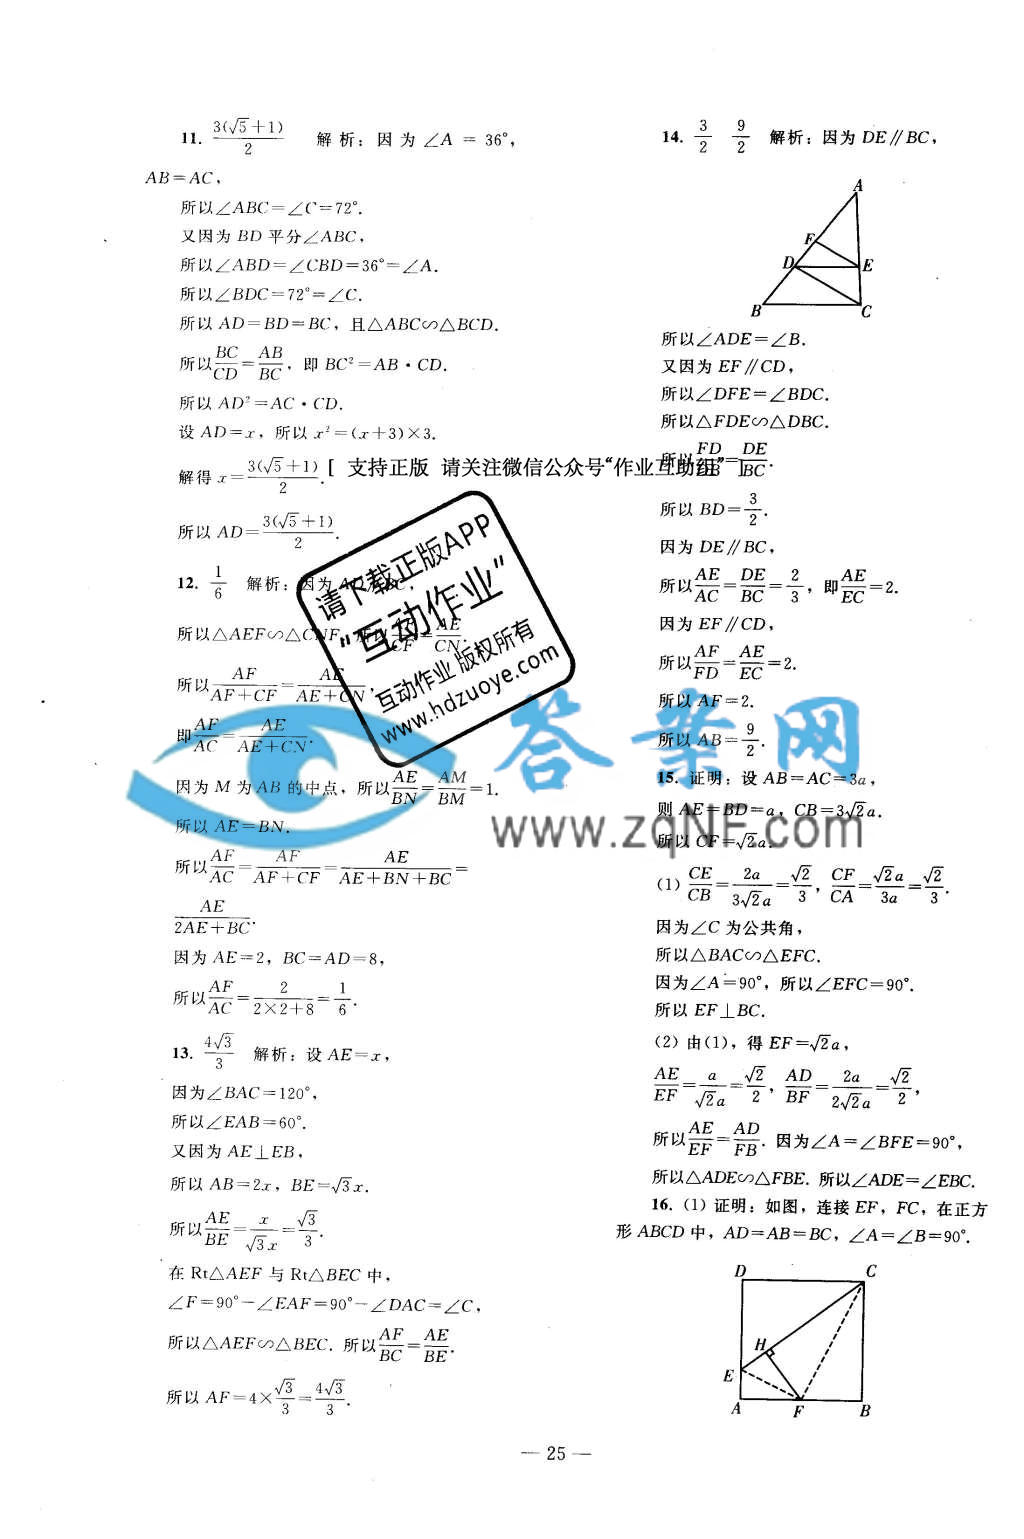 11. 3(√5+1)/2 解析：因为∠A=36°，
AB=AC，
所以∠ABC=∠C=72°.
又因为BD平分∠ABC，
所以∠ABD=∠CBD=36°=∠A.
所以∠BDC=72°=∠C.
所以AD=BD=BC，且△ABC∽△BCD.
所以BC/CD=AB/BC，即BC²=AB·CD.
所以AD²=AC·CD.
设AD=x，所以x²=(x+3)×3.
解得x=3(√5+1)/2.
所以AD=3(√5+1)/2.
12. 1/6 解析：因为
所以△AEF∽△CNF，所以AF/CF=AE/CN.
所以AF/(AF+CF)=AE/(AE+CN)，
即AF/AC=AE/(AE+CN).
因为M为AB的中点，所以AE/BN=AM/BM=1.
所以AE=BN.
所以AF/AC=AF/(AF+CF)=AE/(AE+BN+BC)=
AE/(2AE+BC).
因为AE=2，BC=AD=8，
所以AF/AC=2/(2×2+8)=1/6.
13. 4√3/3 解析：设AE=x，
因为∠BAC=120°，
所以∠EAB=60°.
又因为AE⊥EB，
所以AB=2x，BE=√3x.
所以AE/BE=x/(√3x)=√3/3.
在Rt△AEF与Rt△BEC中，
∠F=90°-∠EAF=90°-∠DAC=∠C，
所以△AEF∽△BEC. 所以AF/BC=AE/BE.
所以AF=4×√3/3=4√3/3.
14. 3/2 9/2 解析：因为DE∥BC，
A
F
D E
B C
所以∠ADE=∠B.
又因为EF∥CD，
所以∠DFE=∠BDC.
所以△FDE∽△DBC.
所以FD/DB=DE/BC.
所以BD=3/2.
因为DE∥BC，
所以AE/AC=DE/BC=2/3，即AE/EC=2.
因为EF∥CD，
所以AF/FD=AE/EC=2.
所以AF=2.
所以AB=9/2.
15. 证明：设AB=AC=3a，
则AE=BD=a，CB=3√2a.
所以CF=√2a.
(1) CE/CB=2a/(3√2a)=√2/3，CF/CA=√2a/3a=√2/3.
因为∠C为公共角，
所以△BAC∽△EFC.
因为∠A=90°，所以∠EFC=90°.
所以EF⊥BC.
(2)由(1)，得EF=√2a，
AE/EF=a/(√2a)=√2/2，AD/BF=2a/(2√2a)=√2/2，
所以AE/EF=AD/FB. 因为∠A=∠BFE=90°，
所以△ADE∽△FBE. 所以∠ADE=∠EBC.
16. (1)证明：如图，连接EF，FC，在正方
形ABCD中，AD=AB=BC，∠A=∠B=90°.
D C
H
E
A F B
— 25 —
[ 支持正版 请关注微信公众号“作业互助组” ]
请下载正版APP
“互动作业”
互动作业 版权所有
www.hdzuoye.com
答案网
www.zqNF.com